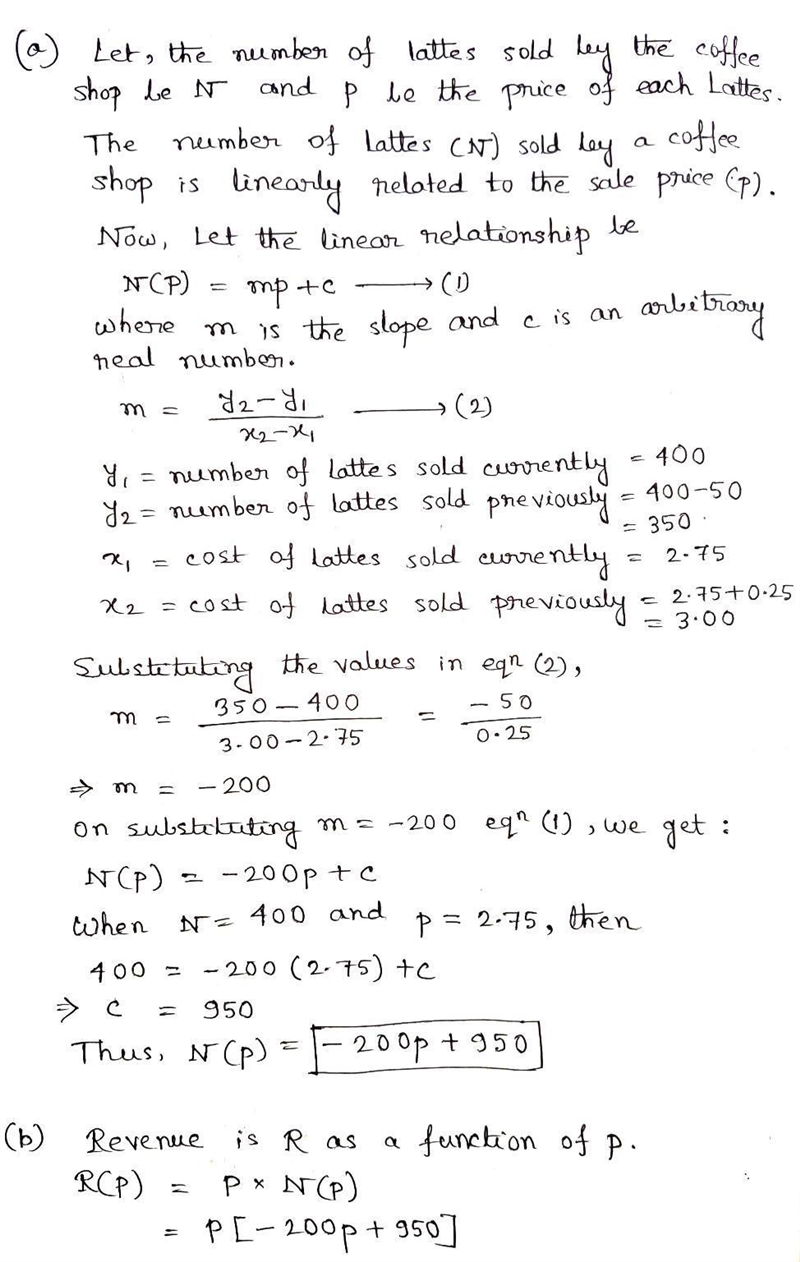 (a) Let, the number of lattes sold by the coffee
shop be N and p be the price of each Lattes.
The number of lattes (N) sold by a coffee
shop is linearly related to the sale price (p).
Now, Let the linear relationship be
N(P) = mp + c ⟶ (1)
where m is the slope and c is an arbitrary
real number.
m = \frac{y₂ - y₁}{x₂ - x₁} ⟶ (2)
y₁ = number of lattes sold currently = 400
y₂ = number of lattes sold previously = 400-50
= 350
x₁ = cost of lattes sold currently = 2.75
x₂ = cost of lattes sold previously = 2.75+0.25
= 3.00
Substituting the values in eqn (2),
m = \frac{350 - 400}{3.00 - 2.75} = \frac{-50}{0.25}
⇒ m = -200
On substituting m = -200 eqⁿ (1), we get :
N(p) = -200p + c
When N = 400 and p = 2.75, then
400 = -200 (2.75) + c
⇒ c = 950
Thus, N(p) = -200p + 950
(b) Revenue is R as a function of p.
R(P) = P × N(p)
= P[-200p + 950]